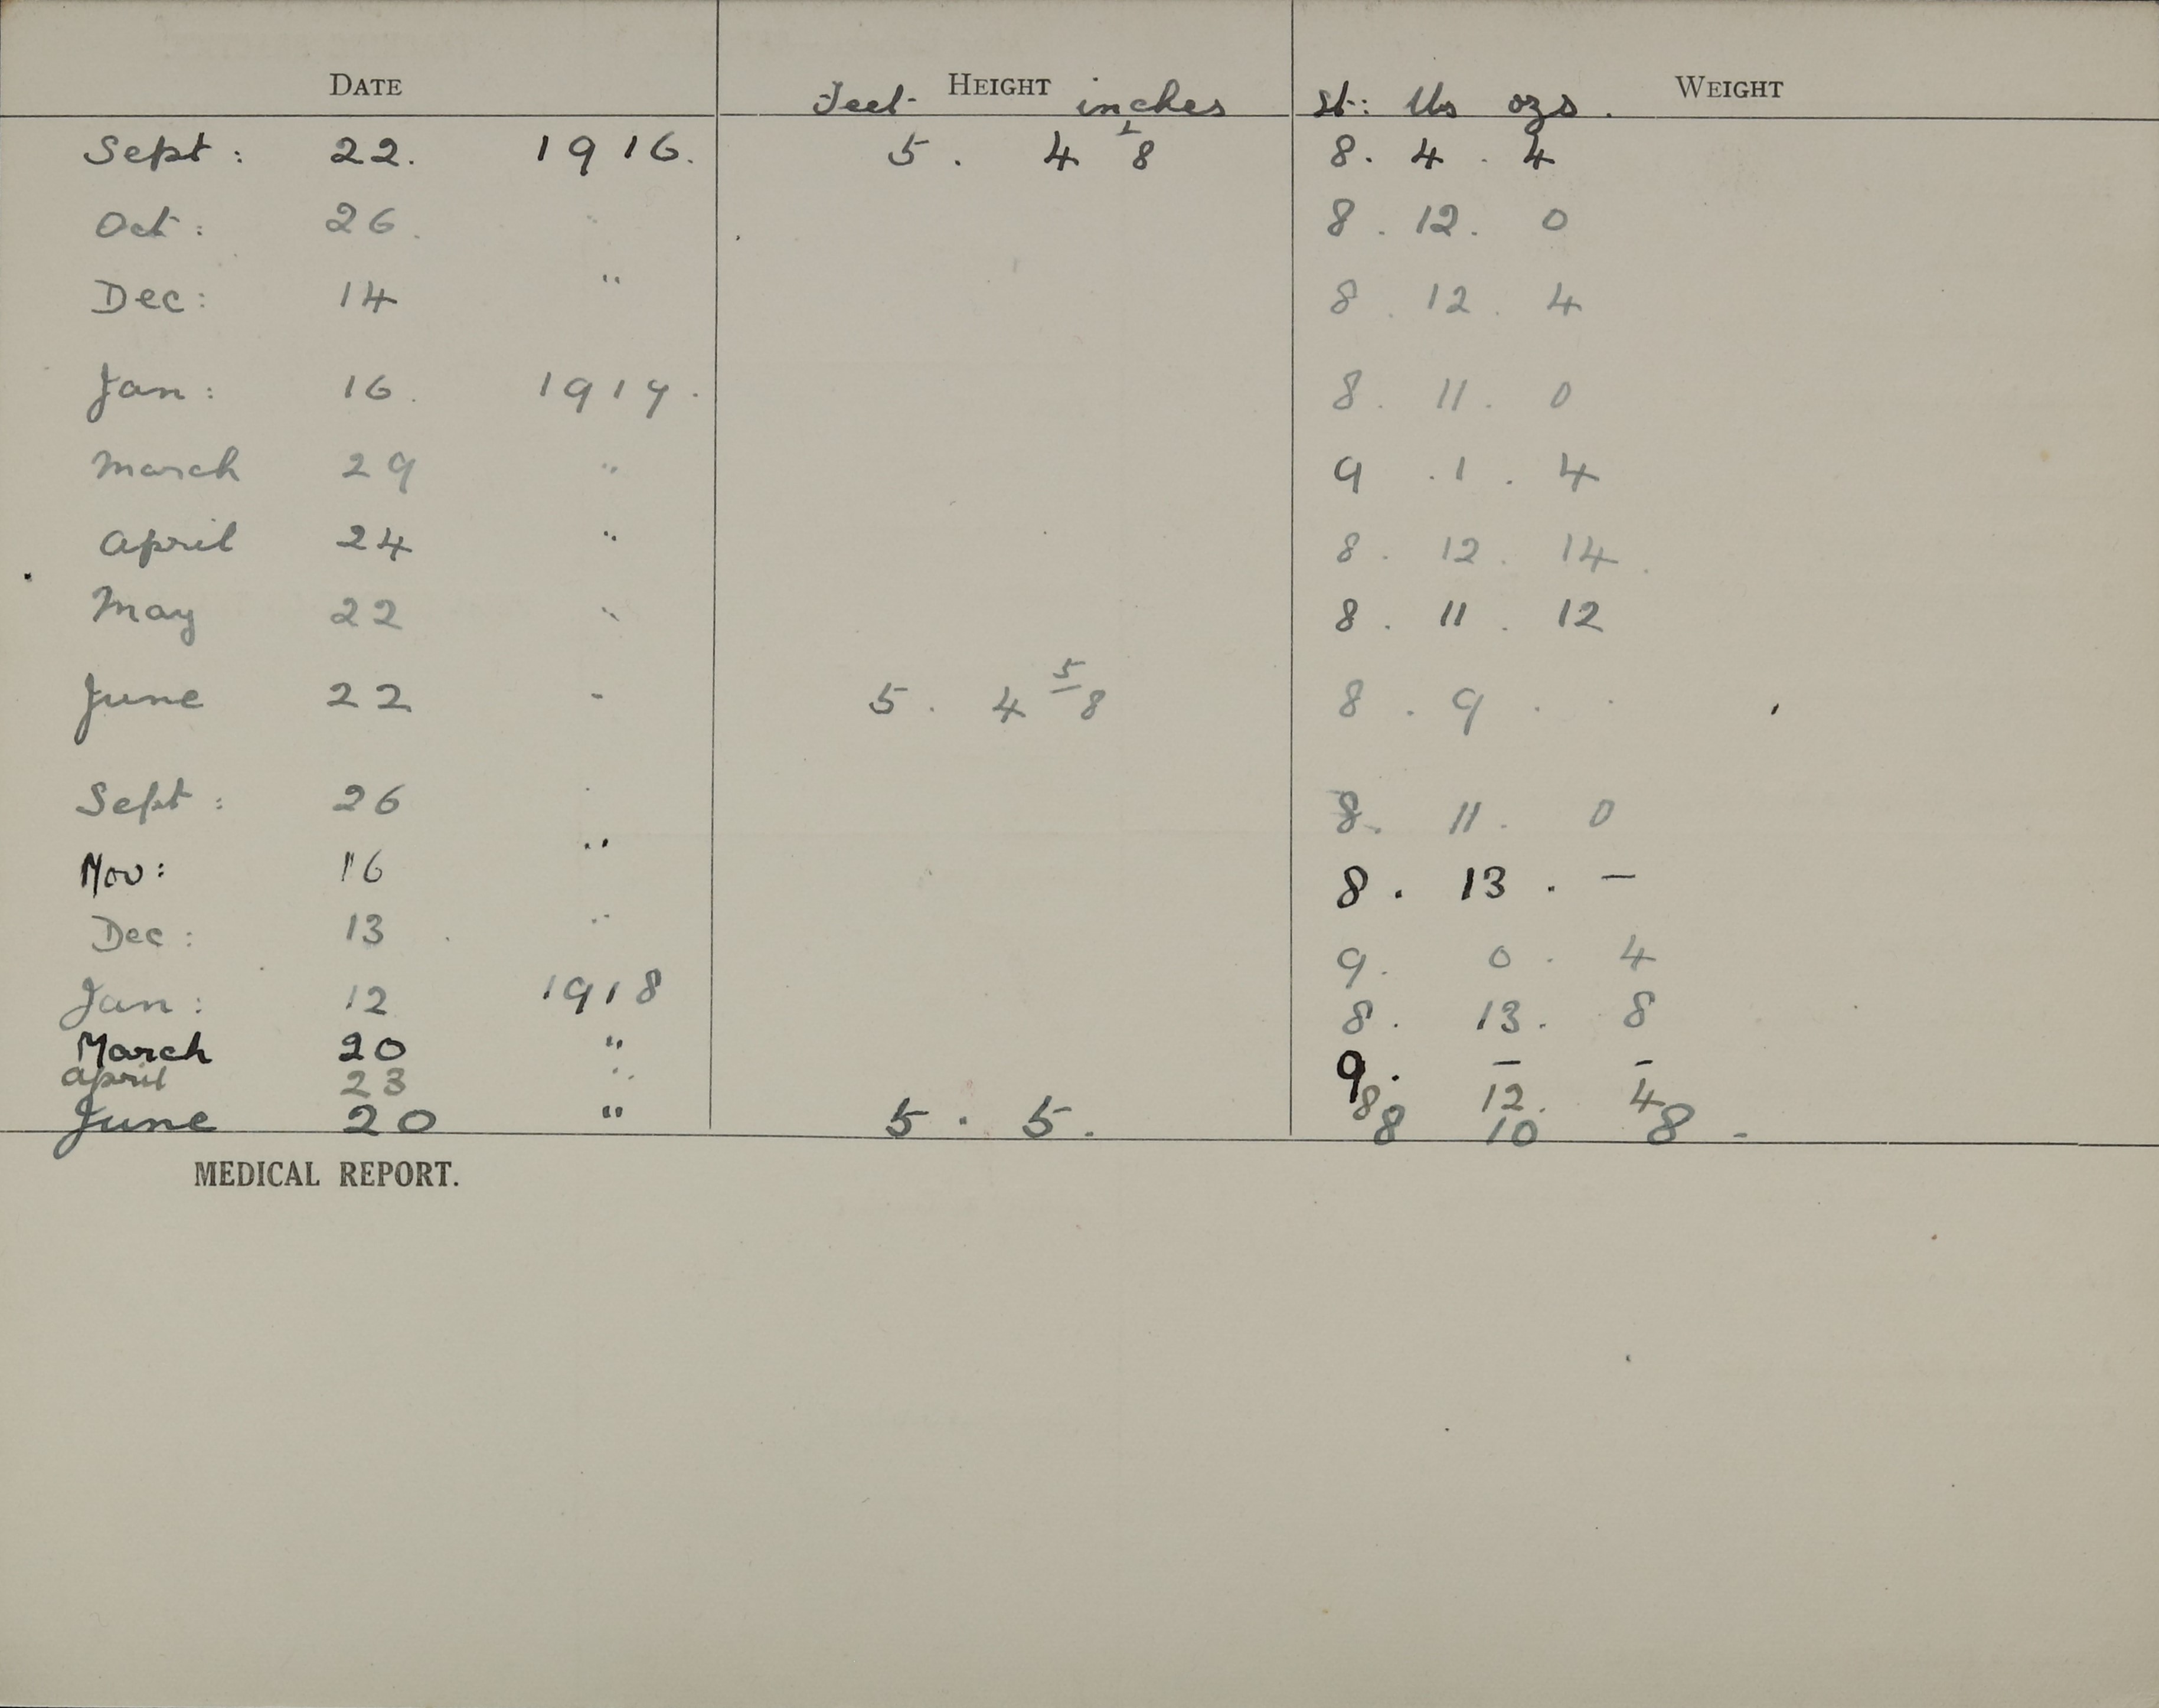 DATE HEIGHT WEIGHT
Feet inches st: lbs ozs.
Sept: 22. 1916. 5. 4 1/8 8. 4. 4
Oct: 26. " 8. 12. 0
Dec: 14 " 8. 12. 4
Jan: 16. 1917. 8. 11. 0
March 29 " 9. 1. 4
April 24 " 8. 12. 14.
May 22 " 8. 11. 12
June 22 - 5. 4 5/8 8. 9. .
Sept: 26 " 8. 11. 0
Nov: 16 " 8. 13. –
Dec: 13 " 9. 0. 4
Jan: 12 1918 8. 13. 8
March 20 " 9. – –
April 23 " 8 12. 4
June 20 " 5. 5. 8 10 8 -
MEDICAL REPORT.